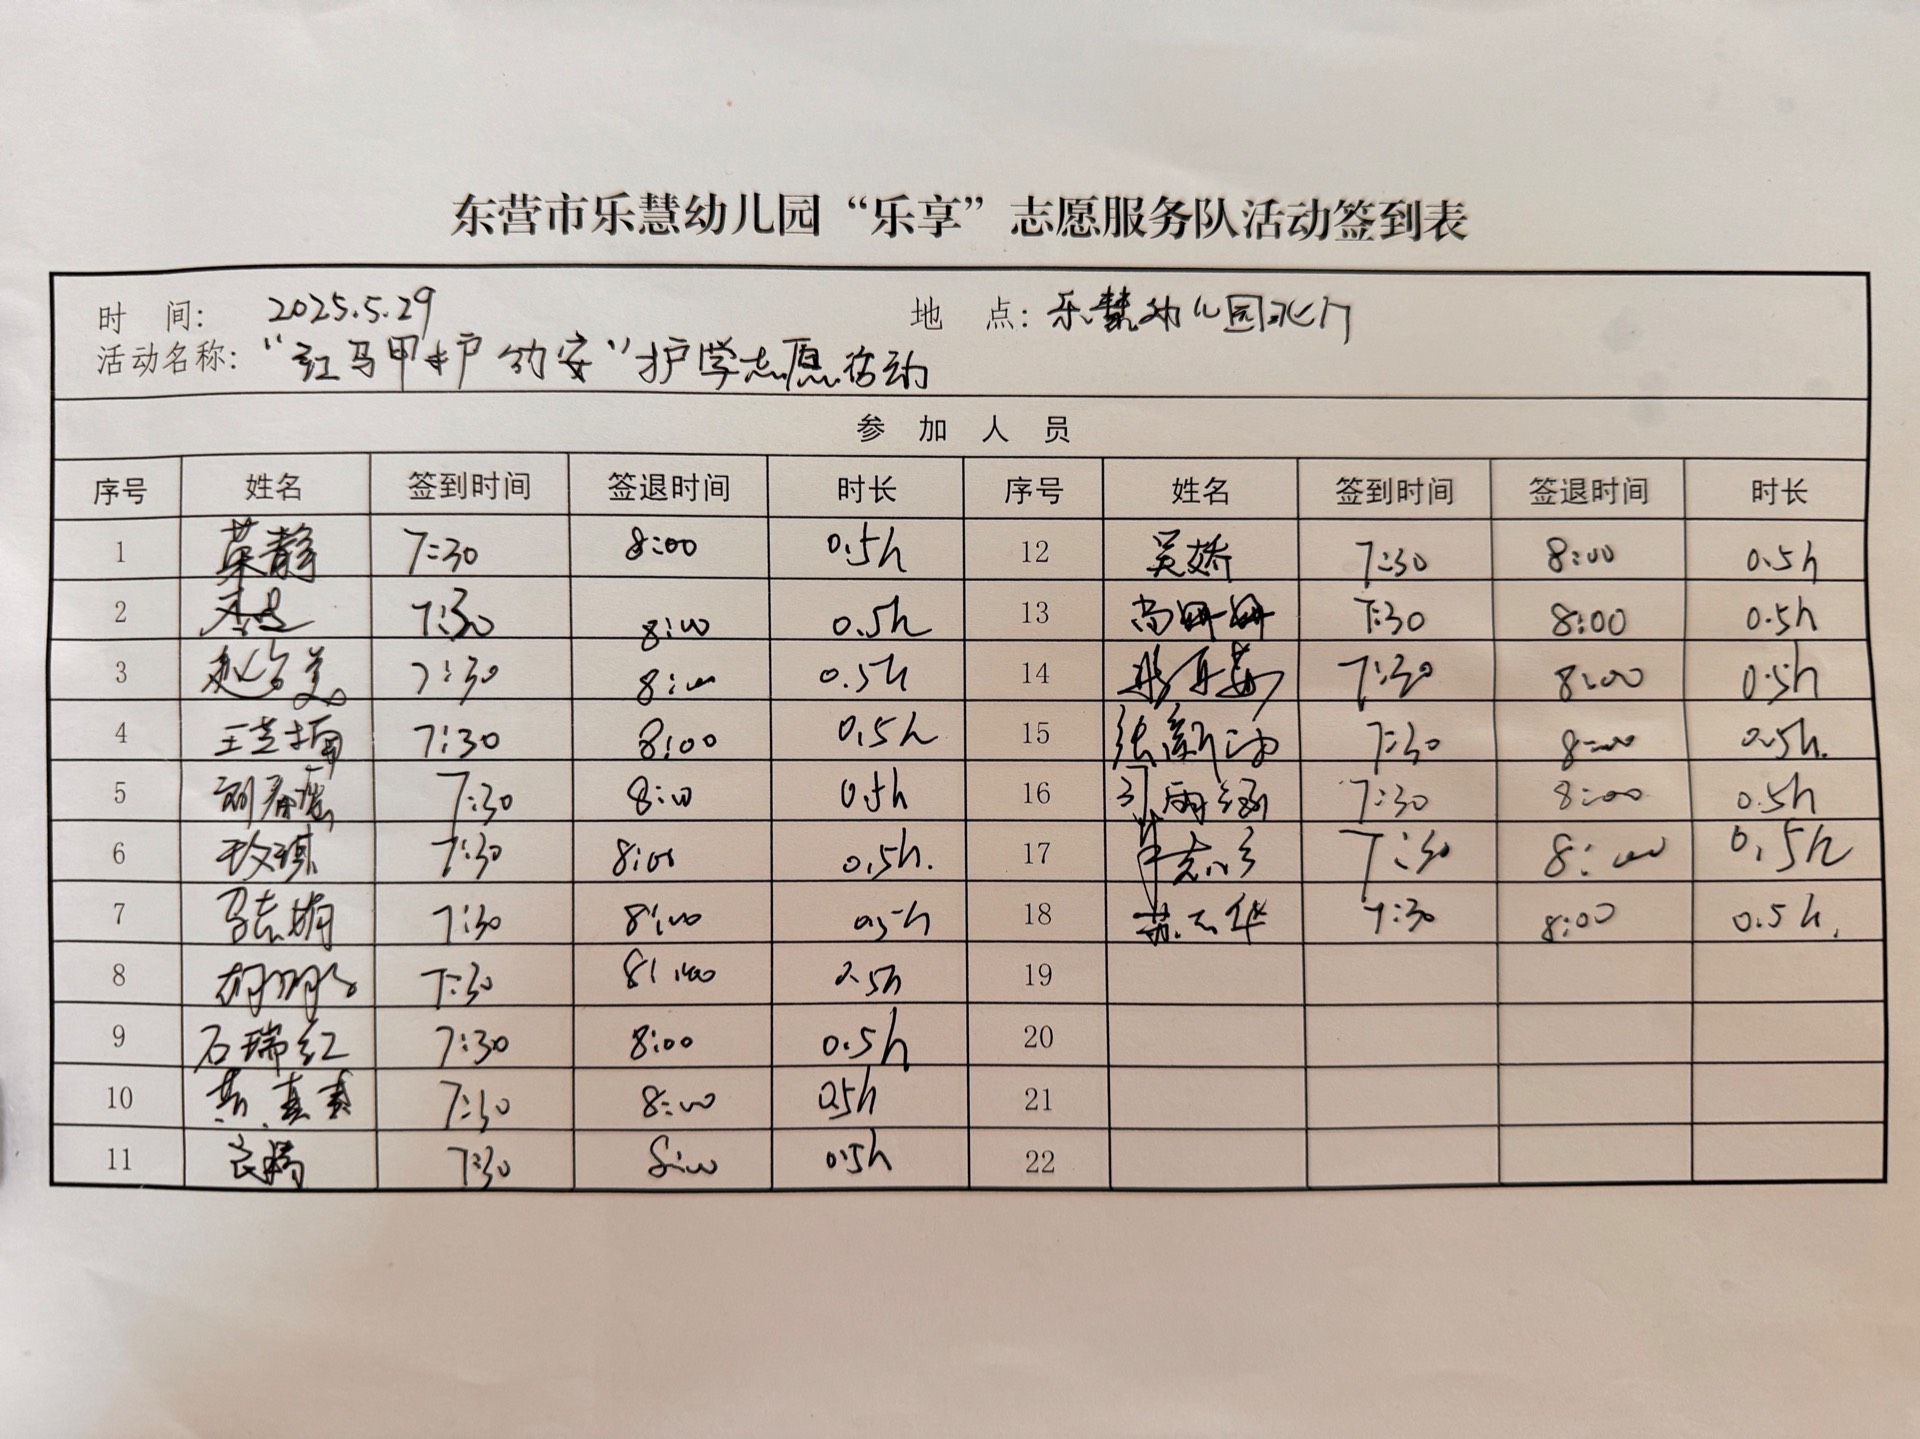 东营市乐慧幼儿园“乐享”志愿服务队活动签到表
时 间: 2025.5.29 地 点: 乐慧幼儿园北门
活动名称: “红马甲护幼安”护学志愿活动
参 加 人 员
序号 姓名 签到时间 签退时间 时长 序号 姓名 签到时间 签退时间 时长
1 7:30 8:00 0.5h 12 吴娇 7:30 8:00 0.5h
2 7:30 8:00 0.5h 13 尚册册 7:30 8:00 0.5h
3 7:30 8:00 0.5h 14 7:30 8:00 0.5h
4 7:30 8:00 0.5h 15 7:30 8:00 0.5h.
5 7:30 8:00 0.5h 16 7:30 8:00 0.5h
6 7:30 8:00 0.5h. 17 7:30 8:00 0.5h
7 7:30 8:00 0.5h 18 7:30 8:00 0.5h.
8 7:30 8:00 0.5h 19
9 石瑞红 7:30 8:00 0.5h 20
10 7:30 8:00 0.5h 21
11 7:30 8:00 0.5h 22